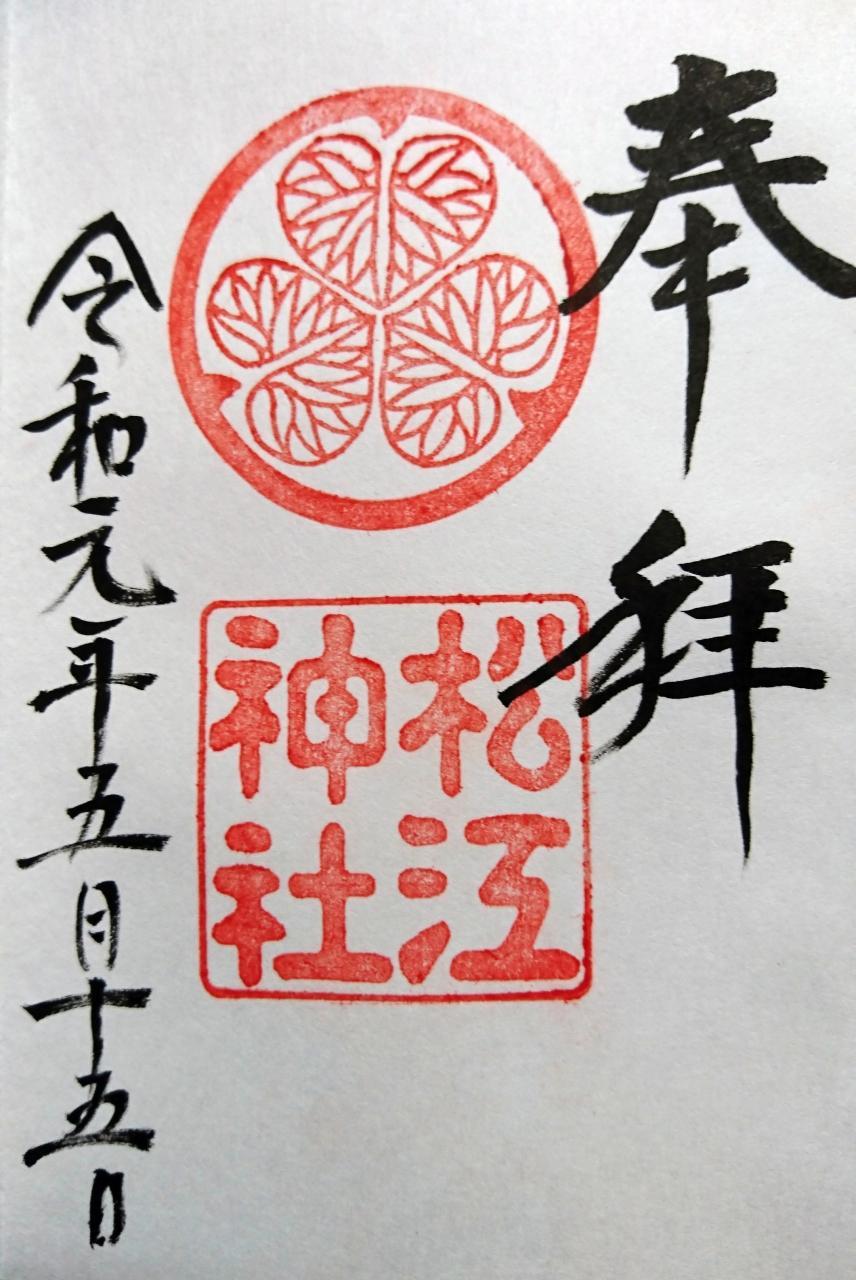 奉拝
松江
神社
令和元年五月十五日